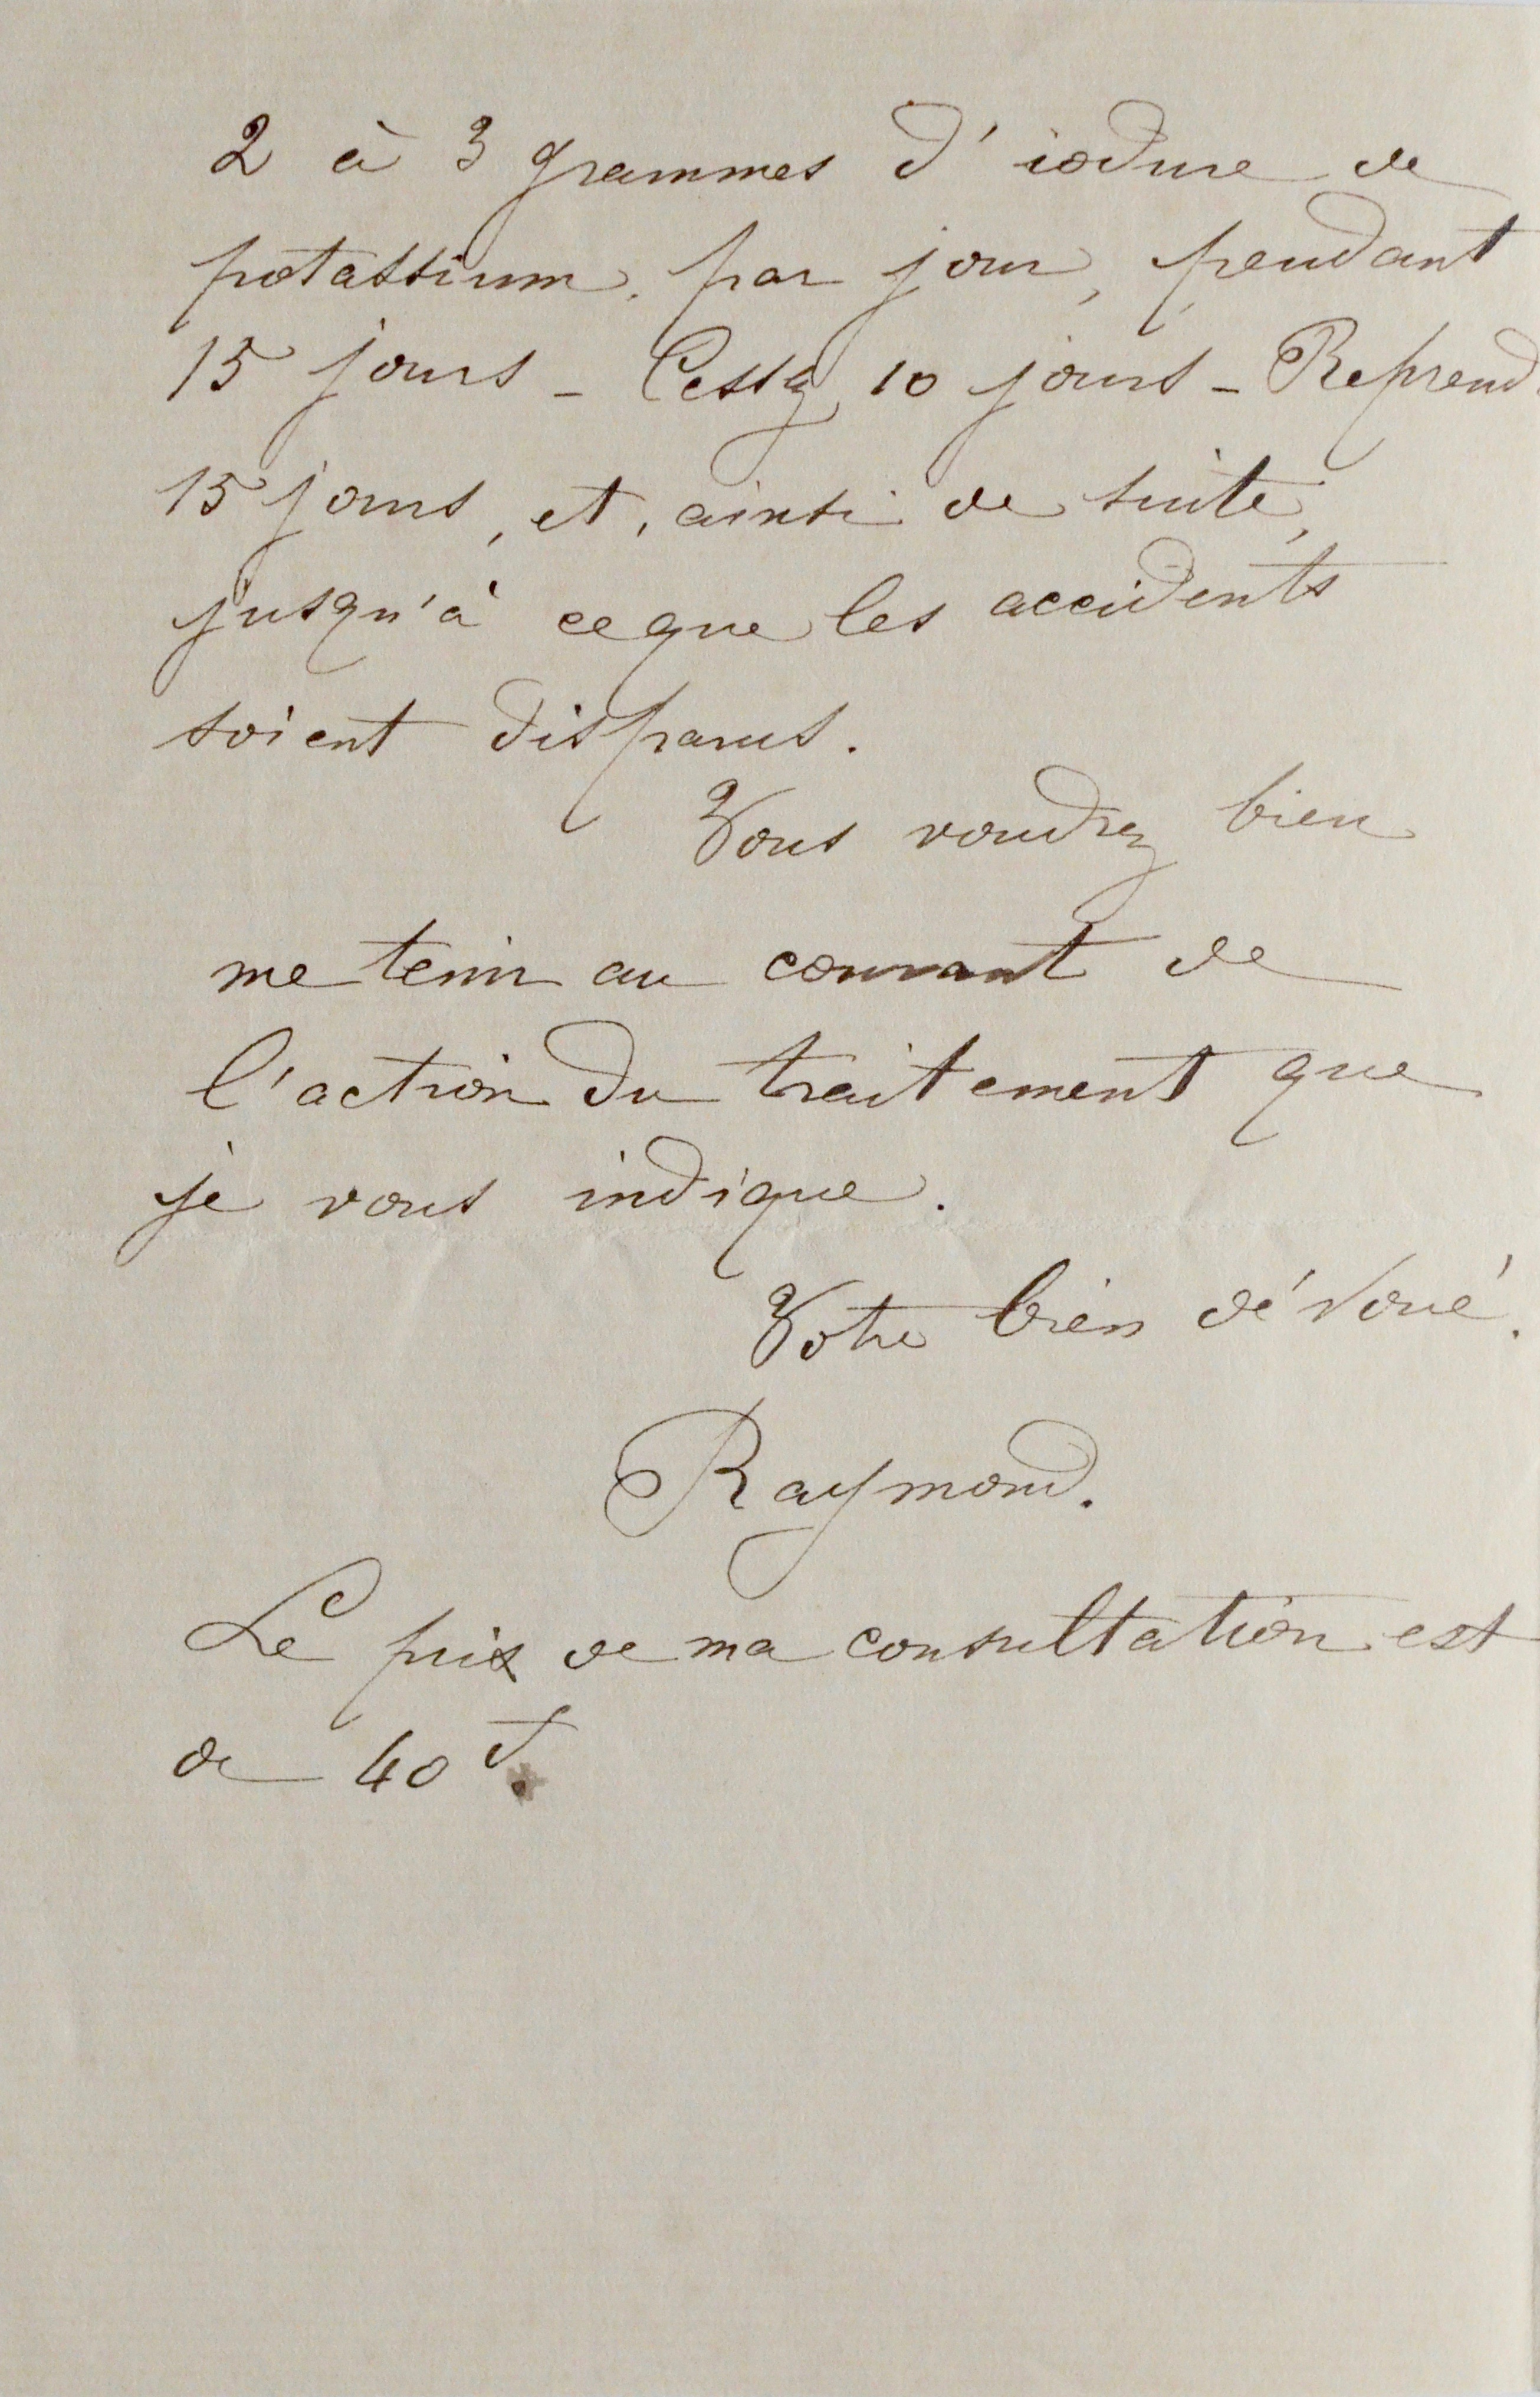 2 à 3 grammes d'iodure de
potassium, par jour, pendant
15 jours - Cessez 10 jours - Reprend
15 jours, et, ainsi de suite,
jusqu'à ce que les accidents
soient disparus.
Vous voudrez bien
me tenir au courant de
l'action du traitement que
je vous indique.
Votre bien dévoué.
Raymond.
Le prix de ma consultation est
de 40 f.